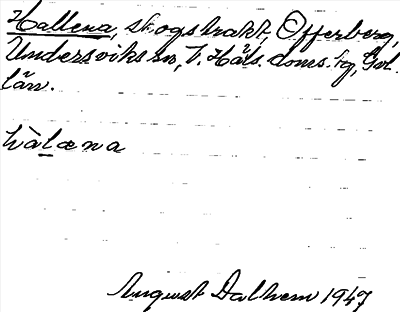 Hallena, skogstrakt, Offerberg,
Undersviks sn, V. Häls. doms. hg, Gvl.
län.
hàlæna
August Dalhem 1947